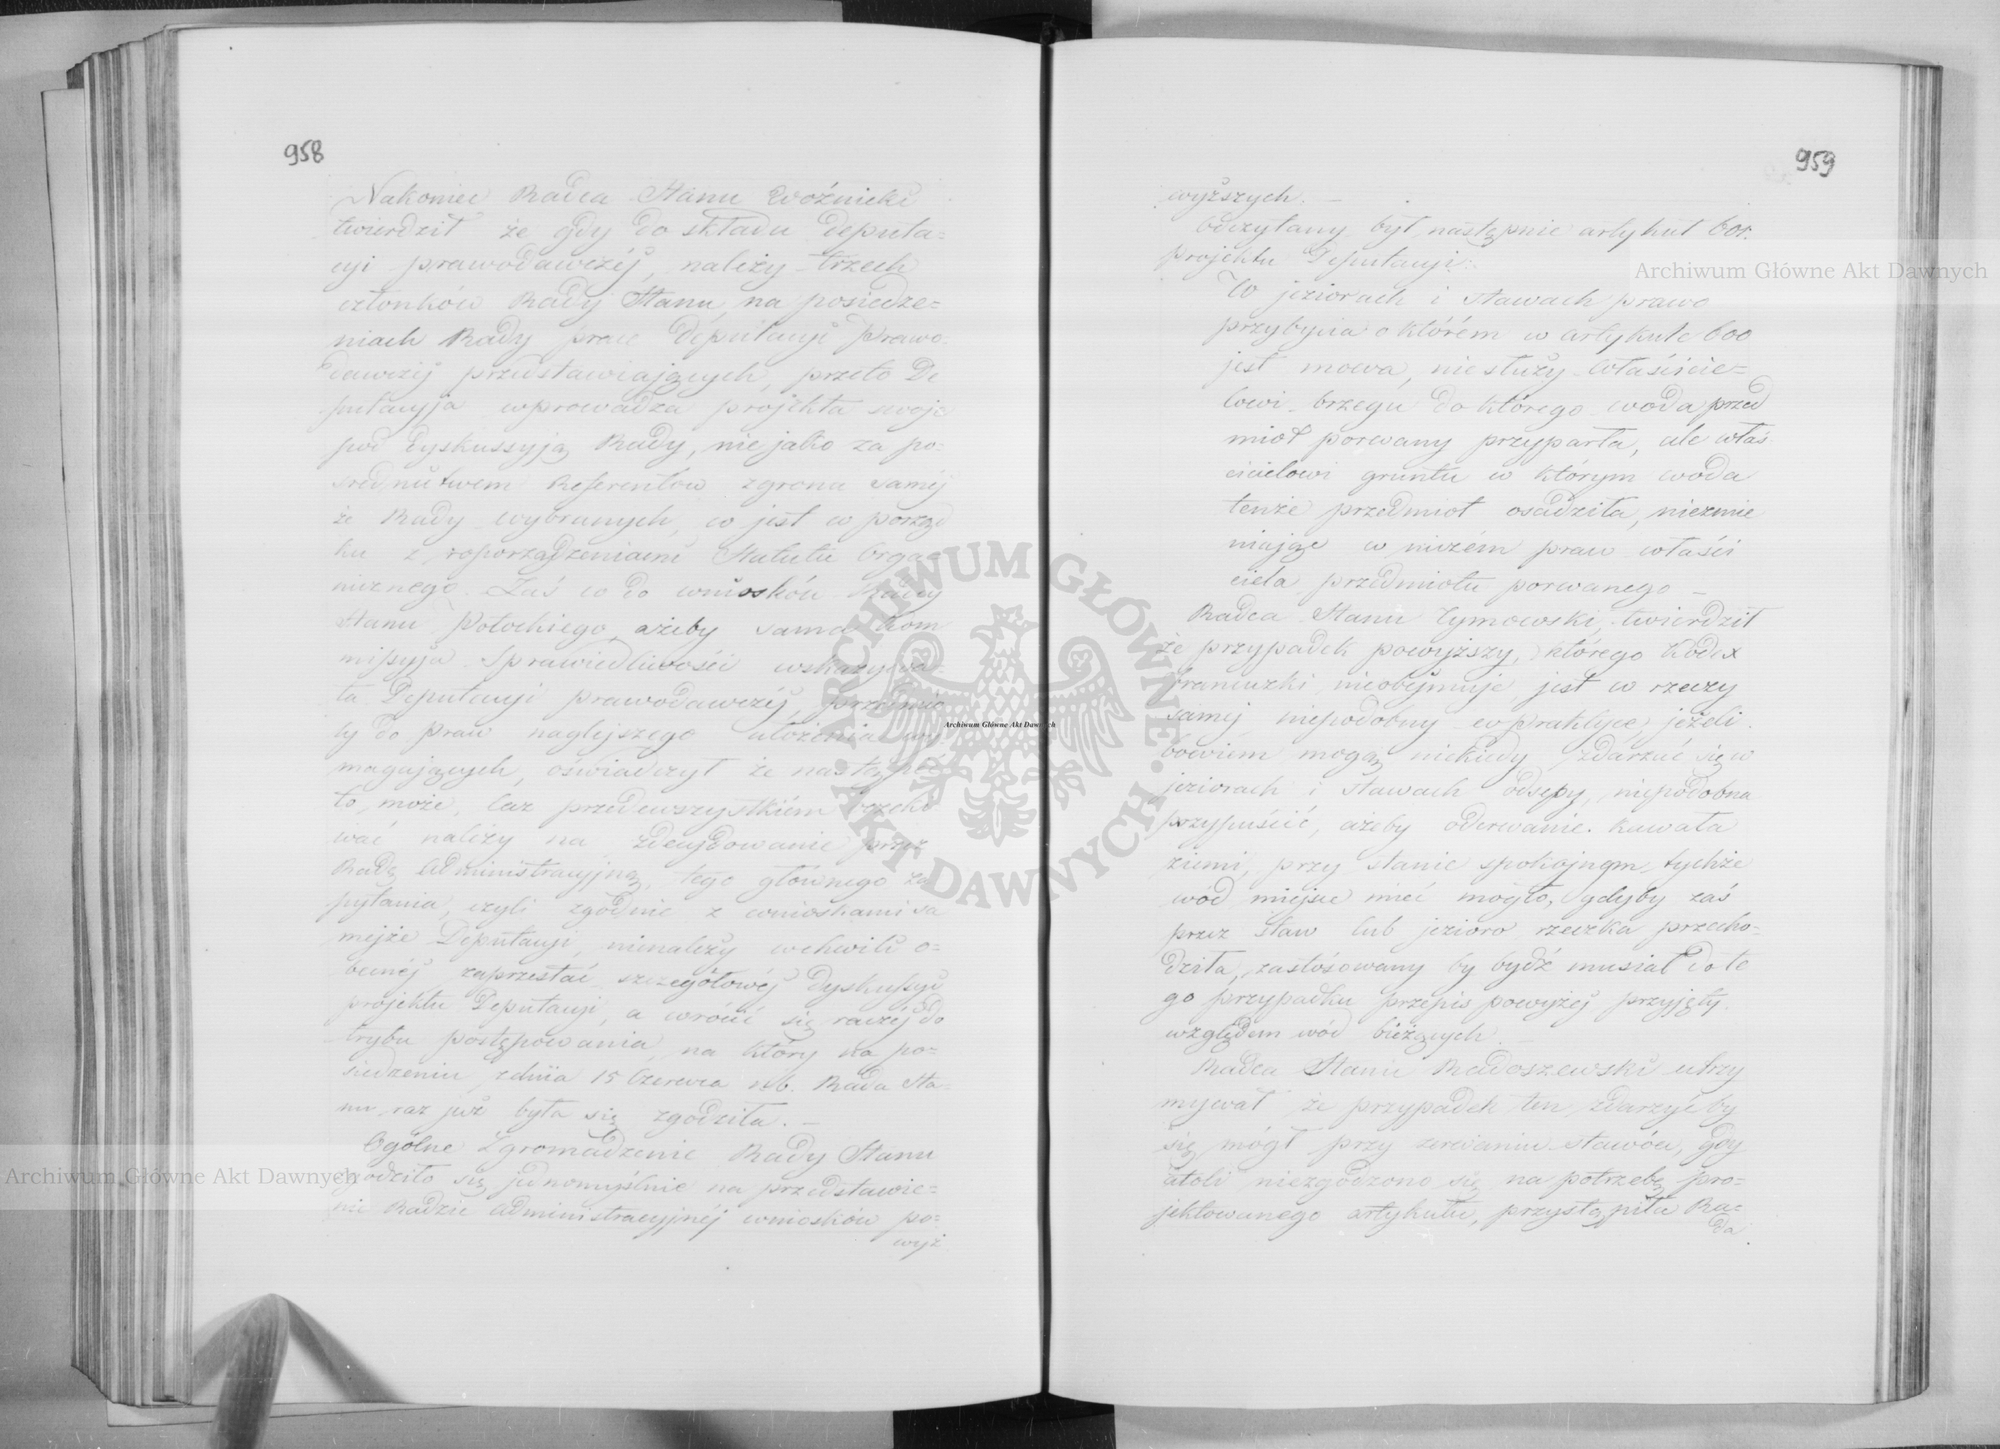 958
Nakoniec Radca Stanu Woźnicki
twierdził że gdy do składu deputa=
cyi prawodawczéj, należy trzech
członków Rady Stanu, na posiedze=
niach Rady prace Deputacyi Prawo=
dawczéj przedstawiających, przeto De
putacyja wprowadza projekta swoje
pod dyskussyją Rady, niejako za po=
średnictwem Referentów zgrona saméj
że Rady wybranych, co jest w porząd
ku z rosporządzeniami Statutu Orga=
nicznego. Zaś co do wniosków Radcy
Stanu Potockiego, ażeby sama Kom
missyja Sprawiedliwości wskazywa=
ła Deputacyi prawodawczéj, przedmio
ty do praw naglejszego ułożenia wy
magających, oświadczył że nastąpić
to może, lecz przedewszystkiém oczeki
wać należy na zdecydowanie przez
Radę Administracyjną, tego głównego za
pytania, czyli zgodnie z wnioskami sa
mejże Deputacyi, nienależy wchwili o=
becnéj zaprzestać szczegółowéj dyskussyi
projektu Deputacyi, a wrócić się raczéj do
trybu postępowania, na który na po=
siedzeniu zdnia 15 Czerwca r.b. Rada Sta=
nu raz już była się zgodziła. —
Ogólne Zgromadzenie Rady Stanu
zgodziło się jednomyślnie na przedstawie=
nie Radzie Administracyjnéj wniosków po=
wyż
959
wyższych. —
Odczytany był następnie artykuł 601.
projektu Deputacyi:
W jeziorach i stawach prawo
przybycia o którém w artykule 600
jest mowa, niesłuży właścicie=
lowi brzegu do którego woda przed
miot porwany przyparła, ale właś
cicielowi gruntu w którym woda
tenże przedmiot osadziła, niezmie
niając w niczém praw właści
ciela przedmiotu porwanego —
Radca Stanu Tymowski, twierdził
że przypadek powyższy, którego Kodex
francuzki nieobejmuje, jest w rzeczy
saméj niepodobny w praktyce, jeżeli
bowiem mogą niekiedy zdarzać się w
jeziorach i stawach odsępy, niepodobna
przypuścić, ażeby oderwanie kawała
ziemi, przy stanie spokojnym tychże
wód miejsce mieć mogło, gdyby zaś
przez staw lub jezioro rzeczka przecho=
dziła, zastósowany by bydź musiał do te
go przypadku przepis powyżéj przyjęty
względem wód bieżących. —
Radca Stanu Radoszewski utrzy
mywał że przypadek ten zdarzyć by
się mógł przy zerwaniu stawów, gdy
atoli niezgodzono się na potrzebę pro=
jektowanego artykułu, przystąpiła Ra=
da.
Archiwum Główne Akt Dawnych
Archiwum Główne Akt Dawnych
Archiwum Główne Akt Dawnych
ARCHIWUM GŁÓWNE · AKT DAWNYCH ·